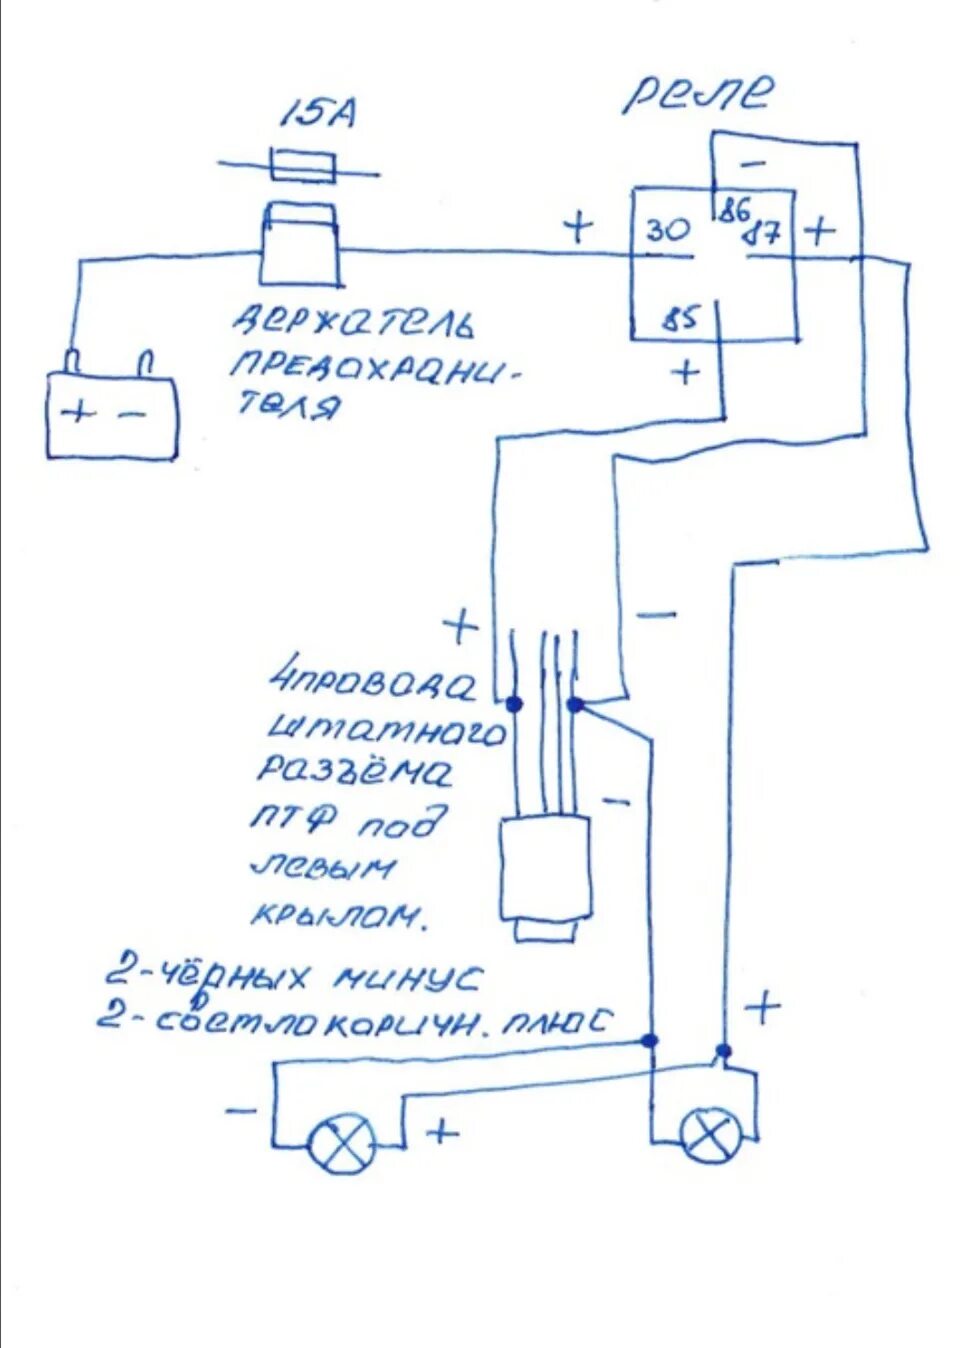 реле
15А
-
86
+
30
87
+
85
+
держатель
предохрани-
теля
+ -
+
-
4 провода
штатного
разъёма
ПТФ под
левым
крылом.
-
2-чёрных минус
2-светлокоричн. плюс
+
-
+